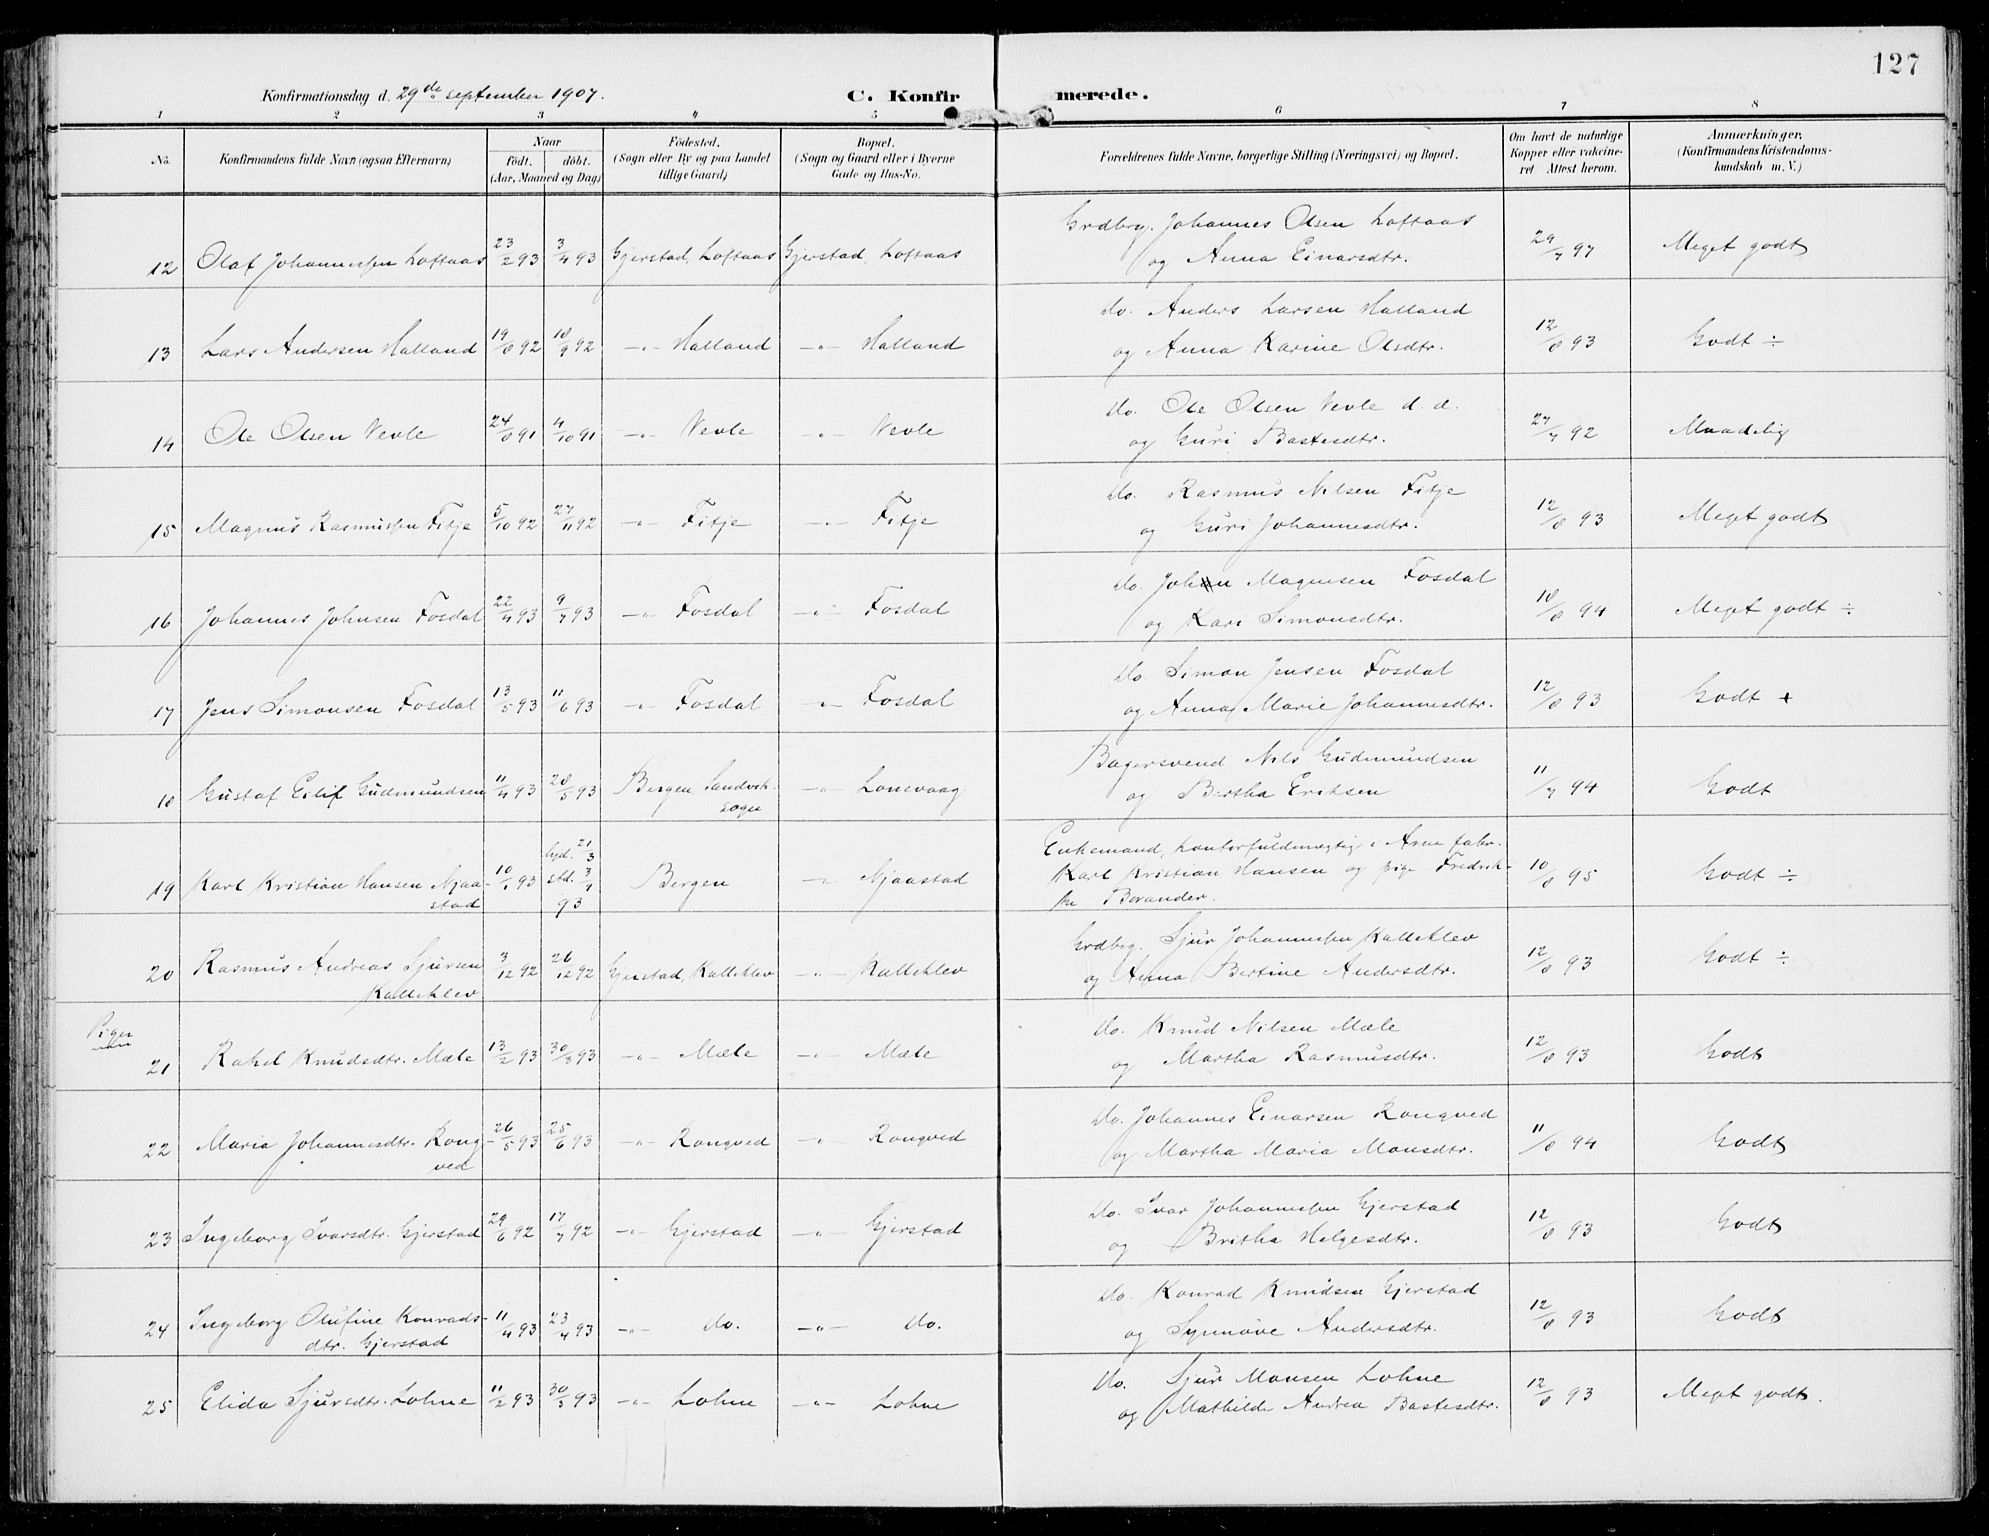 127
Konfirmationsdag d. 29de september 1907.
C. Konfirmerede.
1 2 3 4 5 6 7 8
No.
Konfirmandens fulde Navn (ogsaa Efternavn)
Naar
födt. döbt.
(Aar, Maaned og Dag)
Födested.
(Sogn eller By og paa Landet
tillige Gaard)
Bopæl.
(Sogn og Gaard eller i Byerne
Gade og Hus-No.
Forældrenes fulde Navne, borgerlige Stilling (Næringsvei) og Bopæl.
Om havt de naturlige
Kopper eller vakcine-
ret Attest herom.
Anmærkninger,
(Konfirmandens Kristendoms-
kundskab m. V.)
12 Olaf Johannessen Loftaas 23/2 93 3/4 93 Gjerstad, Loftaas Gjerstad, Loftaas Grdbrg. Johannes Olsen Loftaas
og Anna Einarsdtr. 29/7 97 Meget godt
13 Lars Andersen Halland 19/8 92 18/9 92 —"— Halland —"— Halland do. Anders Larsen Halland
og Anna Karine Olsdtr. 12/8 93 Godt ÷
14 Ole Olsen Vevle 24/8 91 4/10 91 —"— Vevle —"— Vevle do. Ole Olsen Vevle d. d.
og Guri Bastesdtr. 27/7 92 Maadelig
15 Magnus Rasmussen Fitje 5/10 92 27/11 92 —"— Fitje —"— Fitje do. Rasmus Nilsen Fitje
og Guri Johannesdtr. 12/8 93 Meget godt
16 Johannes Johnsen Fosdal 22/4 93 9/7 93 —"— Fosdal —"— Fosdal do. John Magnesen Fosdal
og Kari Simonsdtr. 18/8 94 Meget godt ÷
17 Jens Simonsen Fosdal 13/5 93 11/6 93 —"— Fosdal —"— Fosdal do Simon Jensen Fosdal
og Anna Marie Johannesdtr. 12/8 93 Godt +
18 Gustaf Eilif Gudmundsen 11/4 93 28/5 93 Bergen Sandvik. —"— Lonevaag Bagersvend Nils Gudmundsen
sogn og Bertha Eriksen 11/7 94 Godt
19 Karl Kristian Hansen Mjaa- 10/1 93 hjd. 21/3 std. 3/4 93 Bergen —"— Mjaastad Enkemand, kontorfuldmægtig i Arne fabr.
stad Karl Kristian Hansen og pige Fredrik-
ke Berander. 10/8 95 Godt ÷
20 Rasmus Andreas Sjursen 3/12 92 26/12 92 Gjerstad, Kalleklev —"— Kalleklev Grdbrg. Sjur Johannessen Kalleklev
Kalleklev og Anna Bertine Andersdtr. 12/8 93 Godt ÷
Piger
21 Rakel Knudsdtr. Mæle 13/2 93 30/3 93 —"— Mæle —"— Mæle do. Knud Nilsen Mæle
og Martha Rasmusdtr. 12/8 93 Godt
22 Maria Johannesdtr. Rong- 26/5 93 25/6 93 —"— Rongved —"— Rongved do. Johannes Einarsen Rongved
ved og Martha Maria Monsdtr. 11/8 94 Godt
23 Ingeborg Ivarsdtr. Gjerstad 29/6 92 17/7 92 —"— Gjerstad —"— Gjerstad do. Ivar Johannessen Gjerstad
og Britha Helgesdtr. 12/8 93 Godt
24 Ingeborg Olufine Konrads- 11/4 93 23/4 93 —"— do. —"— do. do. Konrad Knudsen Gjerstad
dtr. Gjerstad og Synnöve Andersdtr. 12/8 93 Godt
25 Elida Sjursdtr. Lohne 11/2 93 30/3 93 —"— Lohne —"— Lohne do. Sjur Monsen Lohne
og Mathilde Andrea Bastesdtr. 12/8 93 Meget godt.